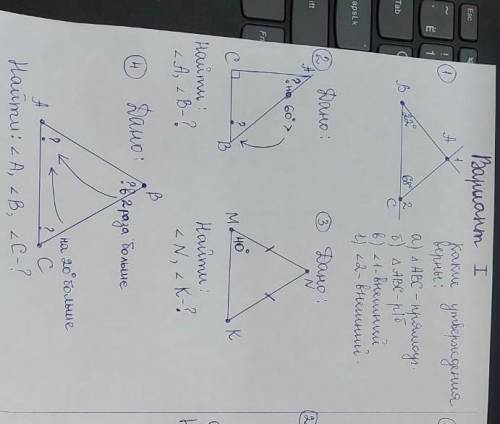 Вариант I
① Какие утверждения
верны:
а) △ABC – прямоуг.
б) △ABC – р/б
в) ∠1 – внешний
г) ∠2 – внешний.
A 1
B 22° 68° 2
C
② Дано:
A
? на 60° >
C ? B
Найти:
∠A, ∠B – ?
③ Дано:
N
M 40° K
Найти:
∠N, ∠K – ?
④ Дано:
B
? в 2 раза больше
A ? ? C
на 20° больше
Найти: ∠A, ∠B, ∠C – ?
2
Esc
Tab
CapsLk
Fn
Ctrl